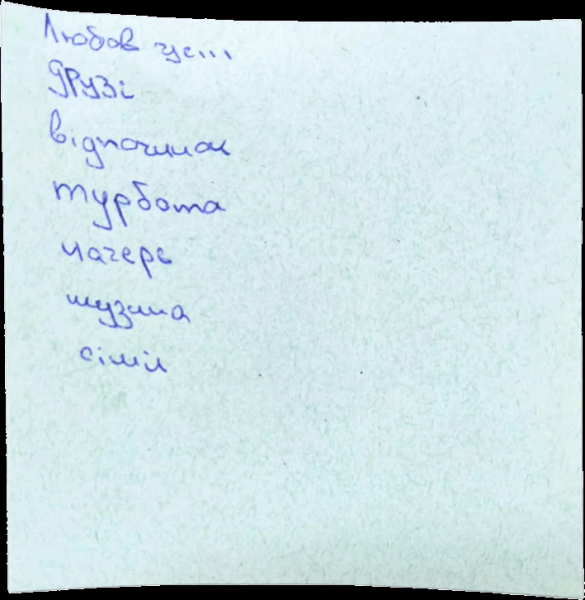 Любов це...
друзі
відпочинок
турбота
матерь
музика
сімія